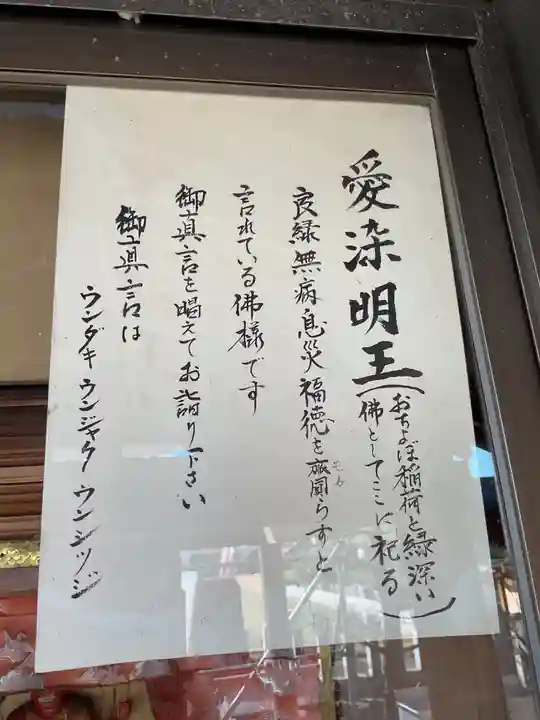 愛染明王(おちよぼ稲荷と縁深い
佛としてここに祀る)
良縁無病息災福徳をらすと
言れている佛様です
御真言を唱えてお詣り下さい
御真言は
ウンダキウンジャクウンシツジ